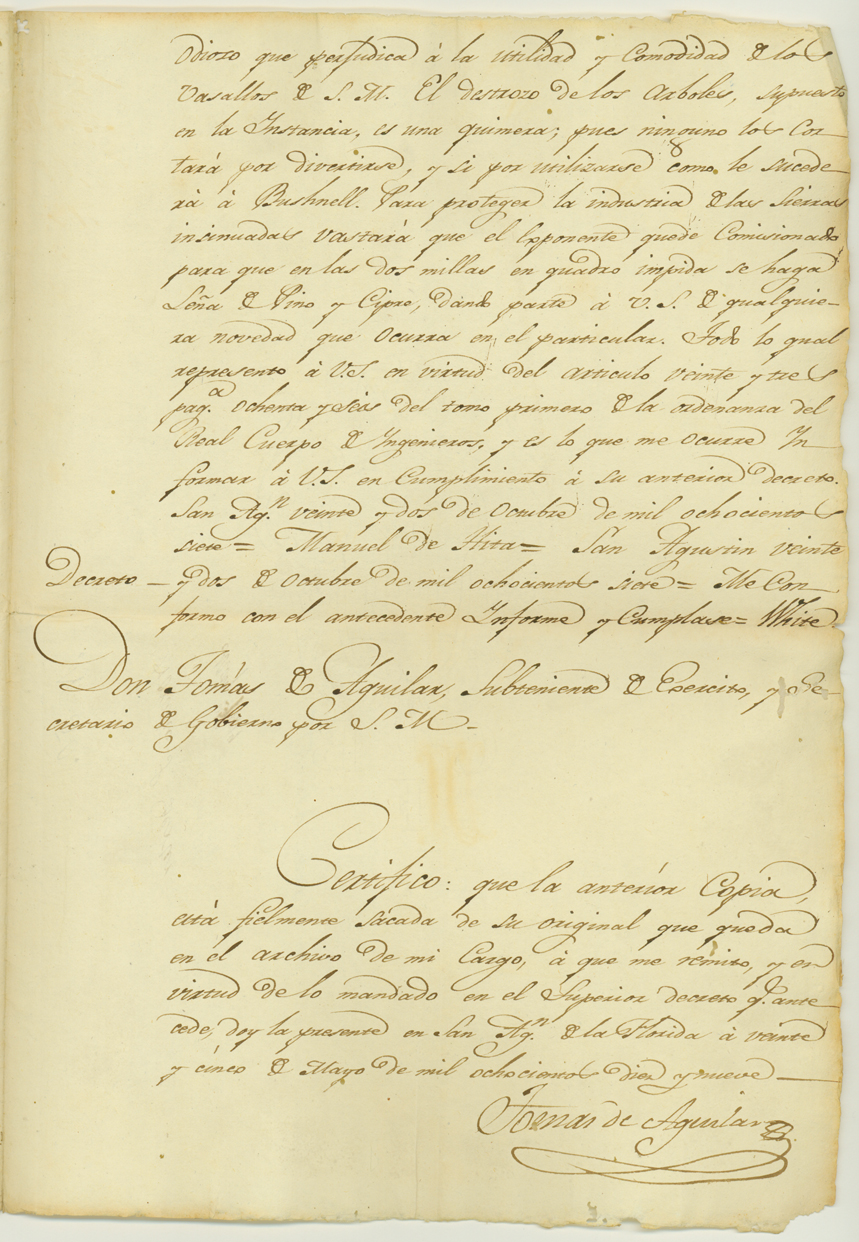 odioso que perjudica à la utilidad y Comodidad de los
Vasallos de S. M. El destrozo de los Arboles, supuesto
en la Instancia, es una quimera; pues ninguno los Cor-
tará por divertirse, y si por utilizarse como le sucede-
rá à Bushnell. Para proteger la industria de las Sierras
insinuadas vastará que el Exponente quede Comisionado
para que en las dos millas en quadro impida se haga
Leña de Pino y Cipre, dando parte à V. S. de qualquie-
ra novedad que ocurra en el particular. Todo lo qual
represento à V.S. en virtud del articulo veinte y tres
pag.a ochenta y seis del tomo primero de la ordenanza del
Real Cuerpo de Ingenieros, y es lo que me ocurre In-
formar à V.S. en Cumplimiento à su anterior decreto.
San Ag.n veinte y dos de Octubre de mil ochocientos
siete = Manuel de Hita = San Agustin veinte
Decreto — y dos de Octubre de mil ochocientos siete = Me Con-
formo con el antecedente Informe y Cumplase = White.
Don Tomás de Aguilar, Subteniente de Exercito, y Se-
cretario de Gobierno por S. M —
Certifico: que la anterior Copia,
está fielmente sácada de su original que queda
en el archivo de mi Cargo, à que me remito, y en
virtud de lo mandado en el Superior decreto q.e ante
cede, doy la presente en San Ag.n de la Florida à veinte
y cinco de Mayo de mil ochocientos diez y nueve —
Tomas de Aguilar